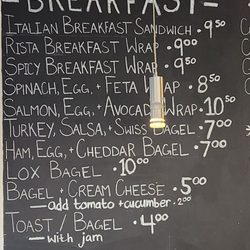 BREAKFAST
ITALIAN BREAKFAST SANDWICH • 9⁵⁰
RISTA BREAKFAST WRAP • 9⁰⁰
SPICY BREAKFAST WRAP • 9⁰⁰
SPINACH, EGG, + FETA WRAP • 8⁵⁰
SALMON, EGG, + AVOCADO WRAP • 10⁵⁰
TURKEY, SALSA, + SWISS BAGEL • 7⁰⁰
HAM, EGG, + CHEDDAR BAGEL • 7⁰⁰
LOX BAGEL • 10⁰⁰
BAGEL + CREAM CHEESE • 5⁰⁰
— add tomato + cucumber • 2⁰⁰
TOAST / BAGEL • 4⁰⁰
— with jam